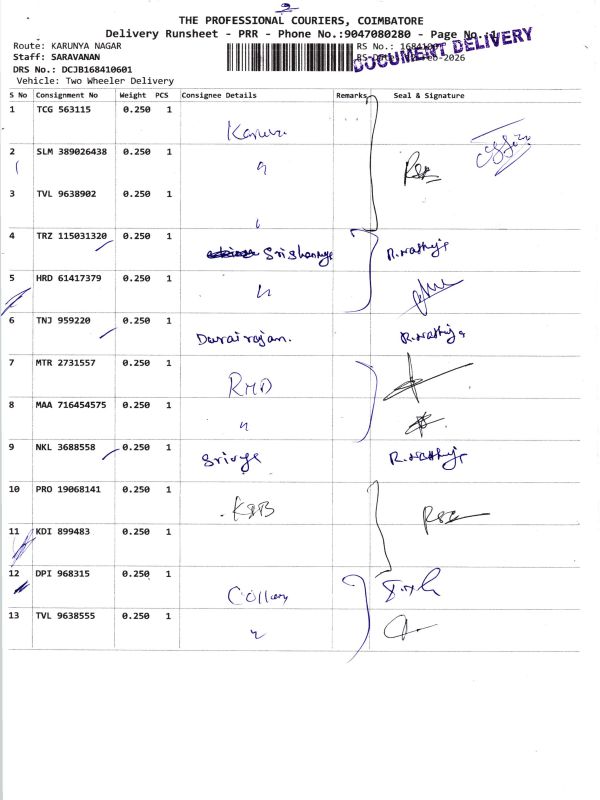 2
THE PROFESSIONAL COURIERS, COIMBATORE
Delivery Runsheet - PRR - Phone No.:9047080280 - Page No.:1
Route: KARUNYA NAGAR
RS No.: 1684106
DOCUMENT DELIVERY
Staff: SARAVANAN
Feb-2026
DRS No.: DCJB168410601
Vehicle: Two Wheeler Delivery
S No Consignment No Weight PCS Consignee Details Remarks Seal & Signature
1 TCG 563115 0.250 1
2 SLM 389026438 0.250 1 "
3 TVL 9638902 0.250 1 "
4 TRZ 115031320 0.250 1
5 HRD 61417379 0.250 1 "
6 TNJ 959220 0.250 1 Durairajan.
7 MTR 2731557 0.250 1 RMD
8 MAA 716454575 0.250 1 "
9 NKL 3688558 0.250 1
10 PRO 19068141 0.250 1
11 KDI 899483 0.250 1
12 DPI 968315 0.250 1
13 TVL 9638555 0.250 1 "